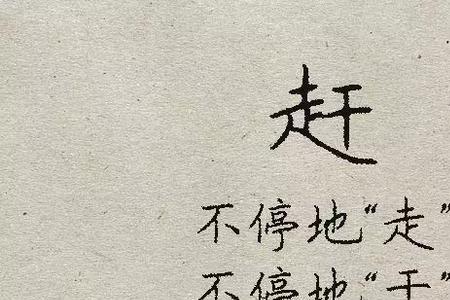 赶
不停地“走”
不停地“干”